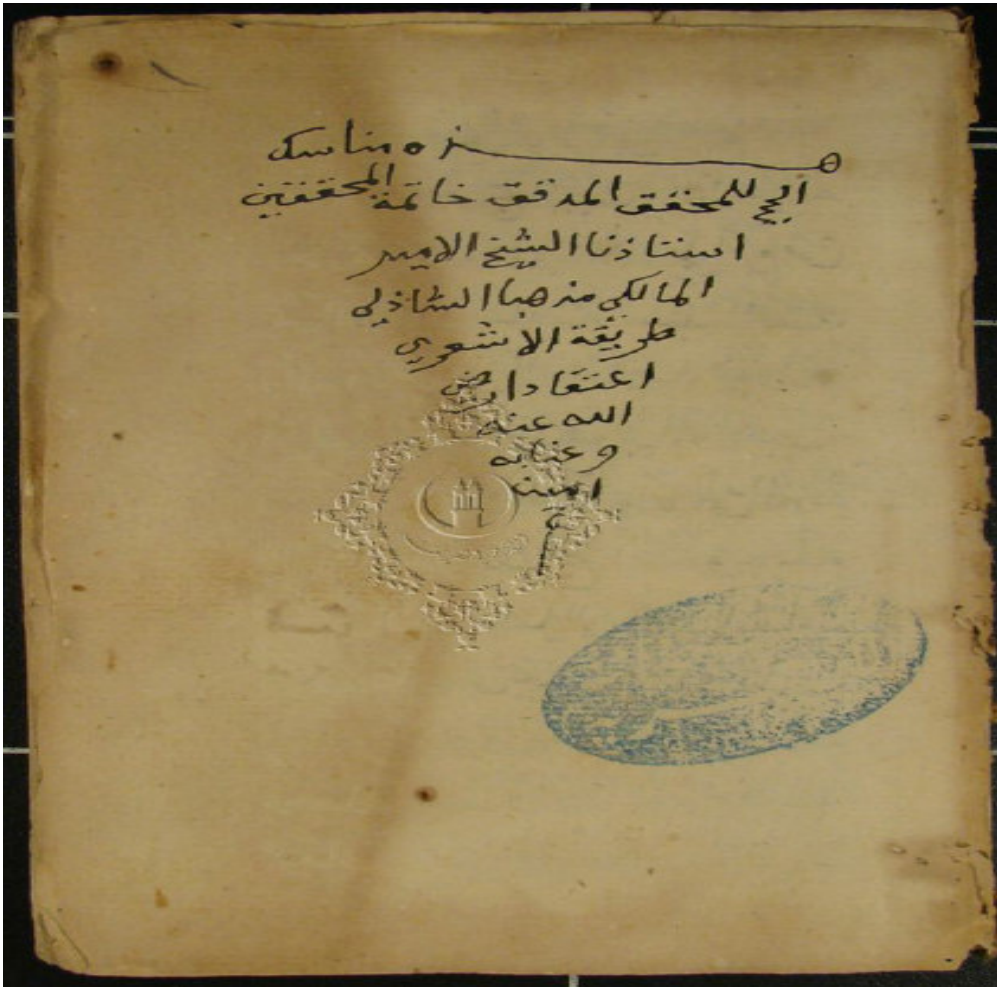 هذه مناسك
الحج للمحقق المدقق خاتمة المحققين
استاذنا الشيخ الامير
المالكي مذهبا الشاذلي
طريقة الاشعري
اعتقادا رضي
الله عنه
وعنا به
امين